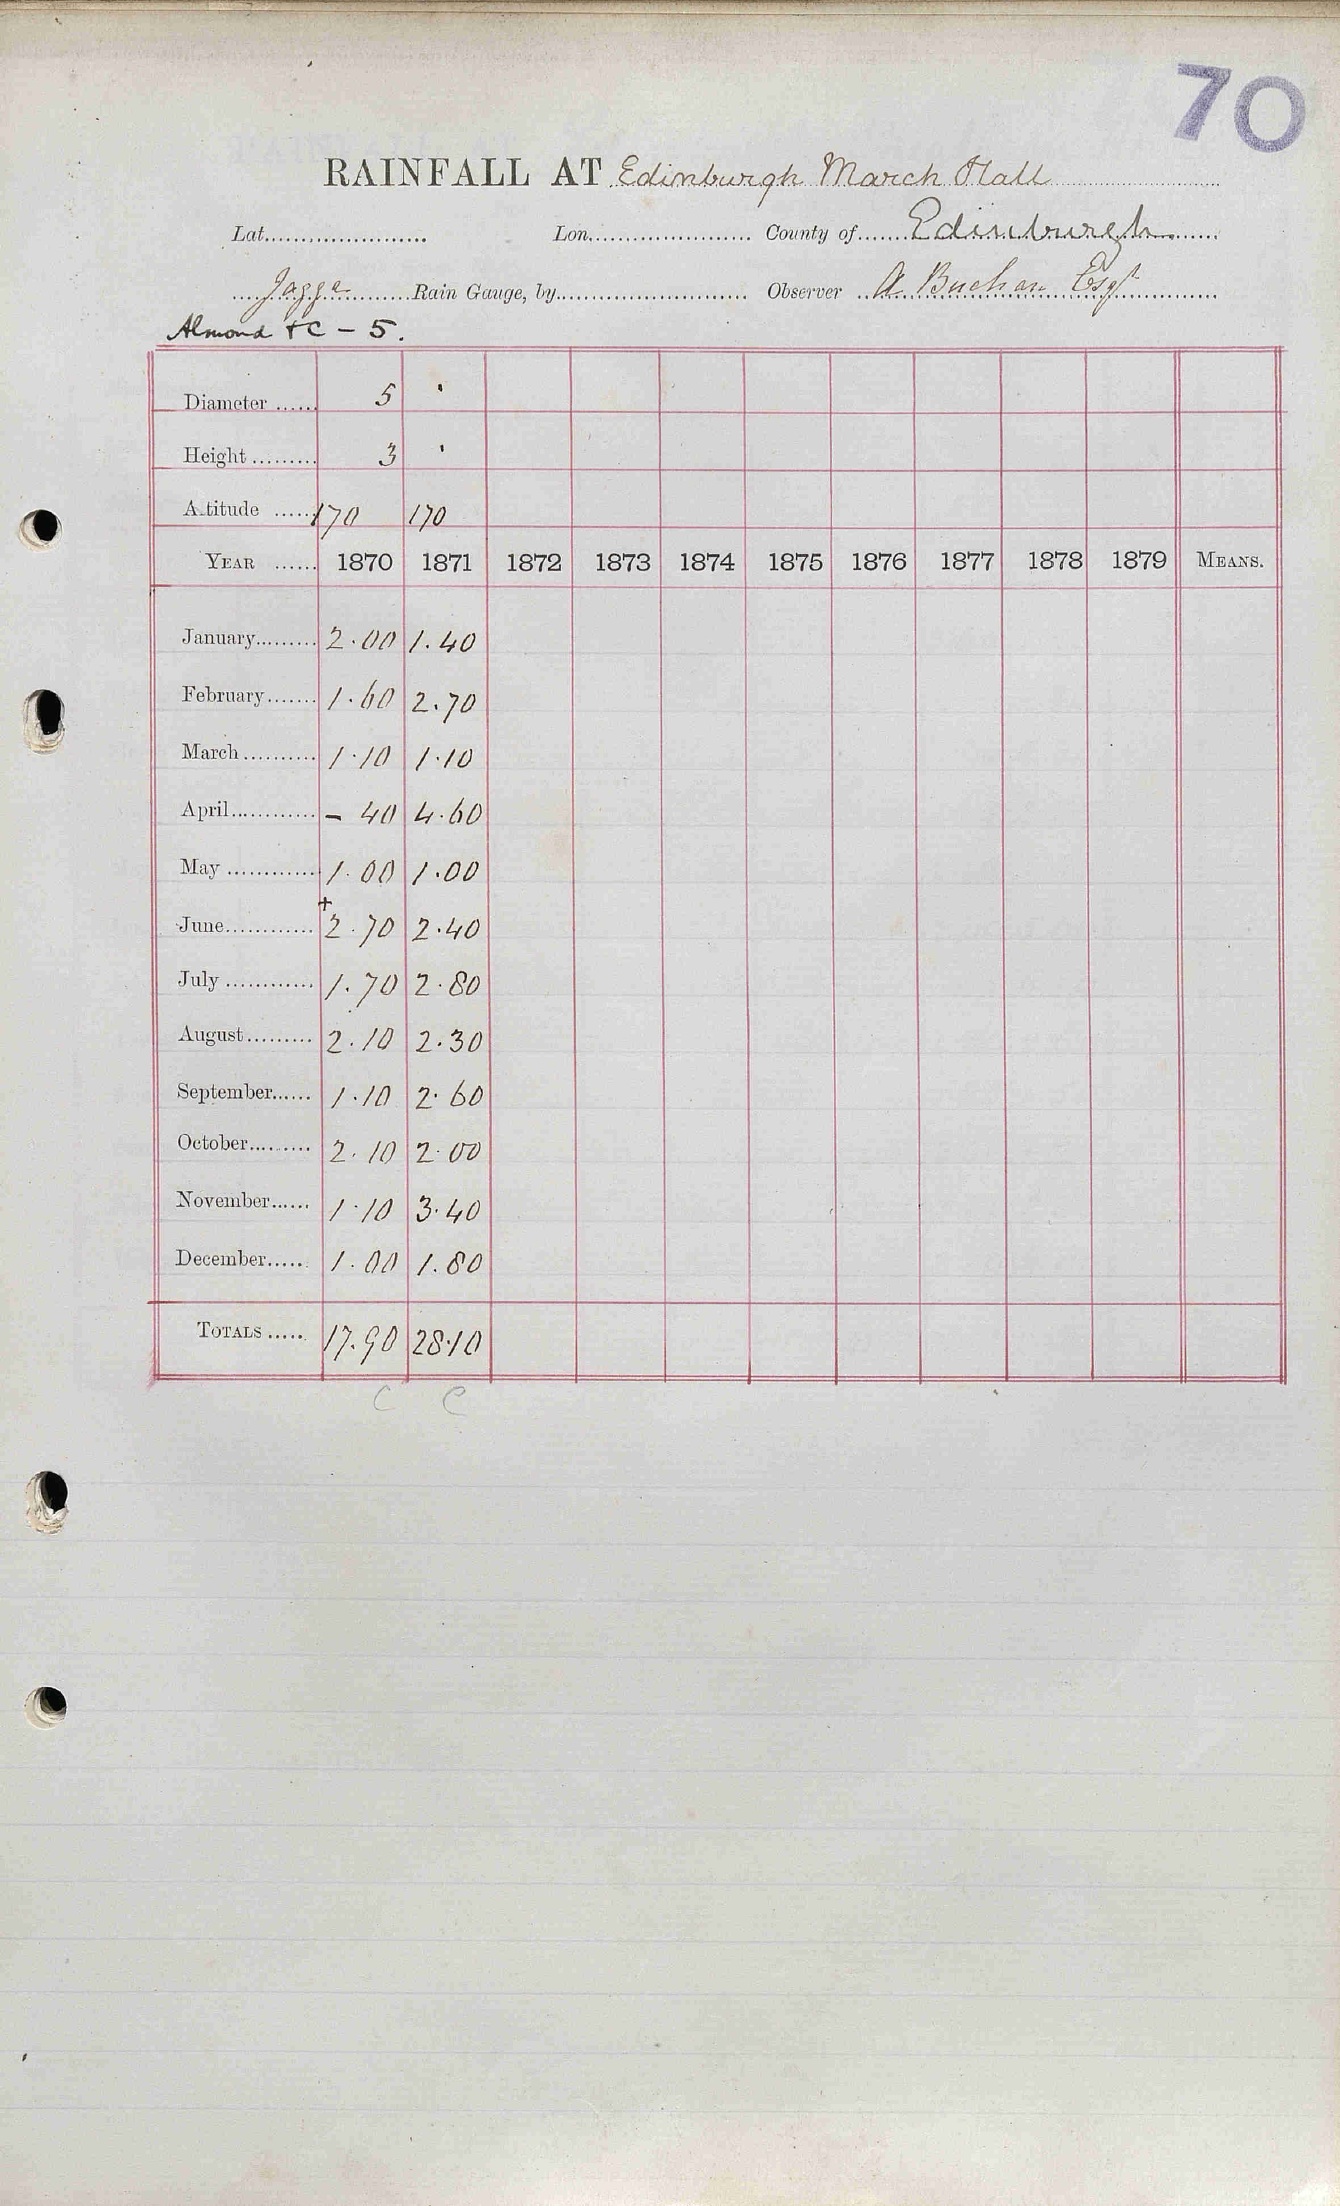 70
RAINFALL AT Edinburgh March Hall
Lat. Lon. County of Edinburgh
Jagga Rain Gauge, by Observer A Buchan Esqr
Almond &C - 5.
Diameter 5 '
Height 3 '
Altitude 170 170
YEAR 1870 1871 1872 1873 1874 1875 1876 1877 1878 1879 MEANS.
January 2.00 1.40
February 1.60 2.70
March 1.10 1.10
April - 40 4.60
May 1.00 1.00
+
June 2.70 2.40
July 1.70 2.80
August 2.10 2.30
September 1.10 2.60
October 2.10 2.00
November 1.10 3.40
December 1.00 1.80
TOTALS 17.90 28.10
C C